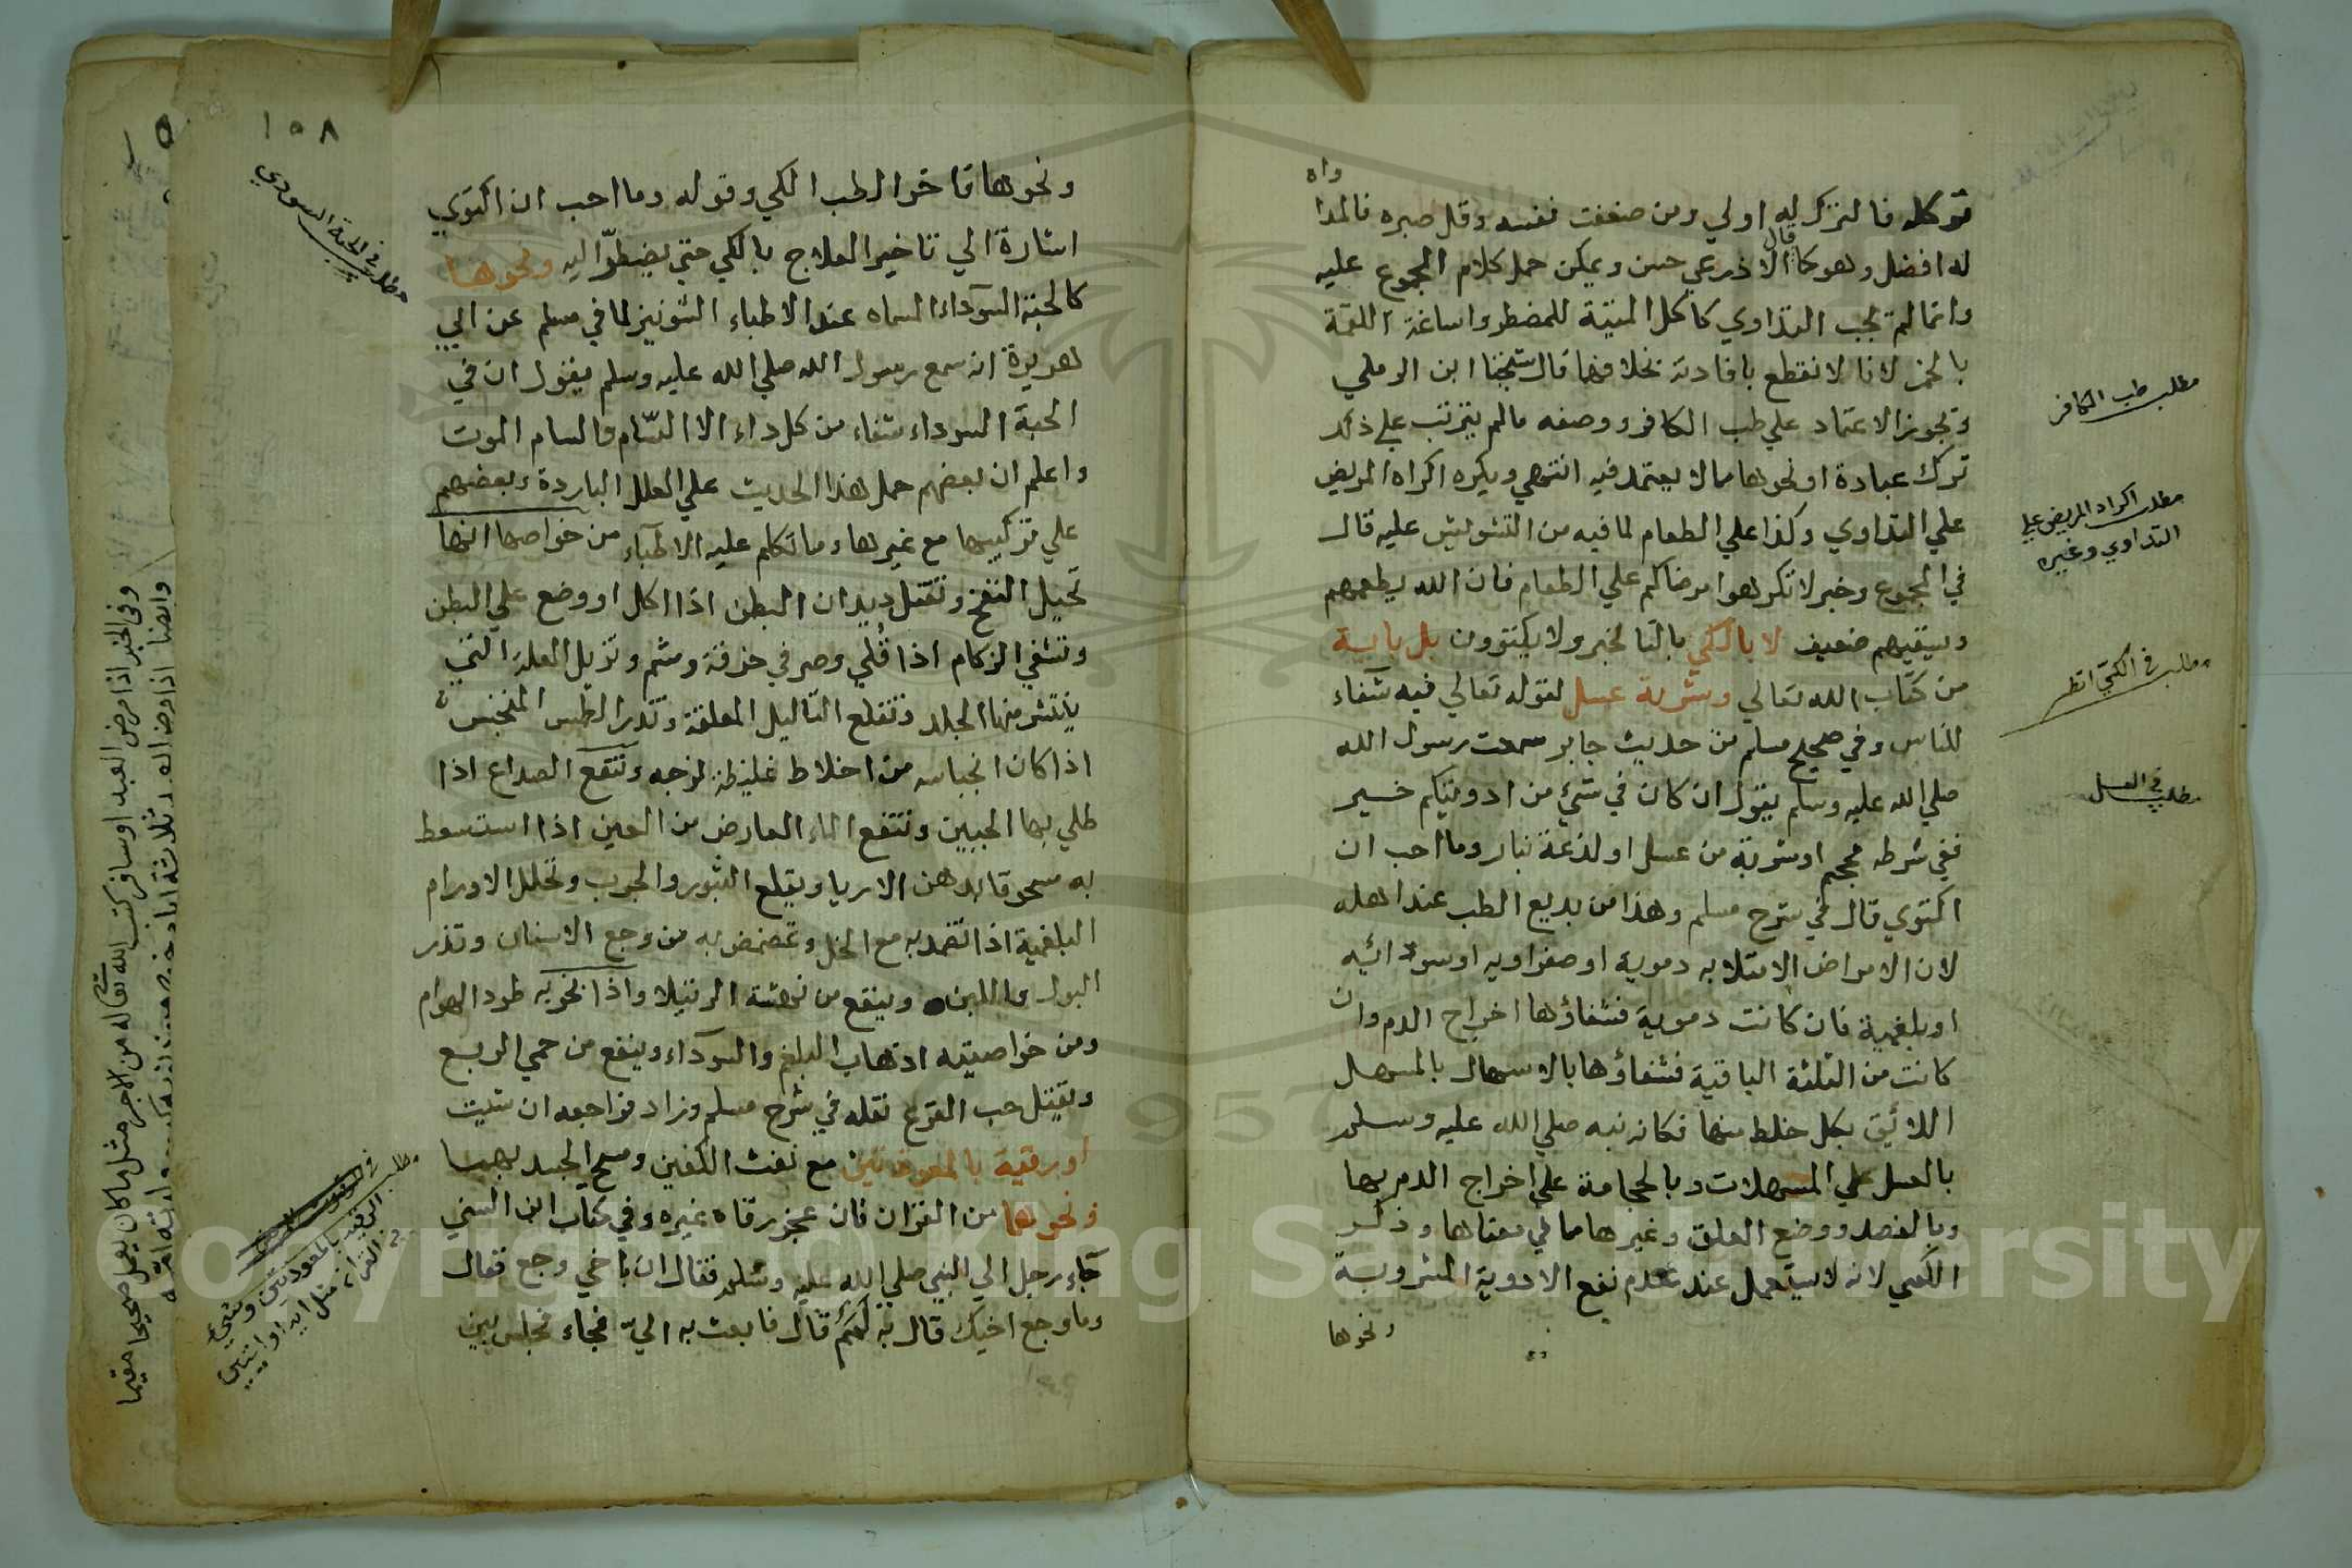 توكله فالترك له اولي ومن ضعفت نفسه وقل صبره فالمدا
واه
له افضل وهو كما قال الاذرعي حسن ويمكن حمل كلام المجموع عليه
وانما لم يجب التداوي كاكل الميتة للمضطر واساغة اللقمة
بالخمر لانا لا نقطع بافادته بخلافهما قال شيخنا ابن الرملي
ويجوز الاعتماد علي طب الكافر ووصفه مالم يترتب علي ذلك
ترك عبادة او نحوها مما لا يعتمد فيه انتهي ويكره اكراه المريض
علي التداوي وكذا علي الطعام لما فيه من التشويش عليه قال
في المجموع وخبر لا تكرهوا مرضاكم علي الطعام فان الله يطعمهم
ويسقيهم ضعيف لا بالكي بالنا لخبر ولا يكتوون بل باية
من كتاب الله تعالي وشربة عسل لقوله تعالي فيه شفاء
للناس وفي صحيح مسلم من حديث جابر سمعت رسول الله
صلي الله عليه وسلم يقول ان كان في شيء من ادويتكم خير
ففي شرطه محجم او شربة من عسل او لذعة بنار وما احب ان
اكتوي قال في شرح مسلم وهذا من بديع الطب عند اهله
لان الامراض الامتلايه دموية او صفراويه او سودائيه
او بلغمية فان كانت دموية فشفاؤها اخراج الدم وان
كانت من الثلثة الباقية فشفاؤها بالاسهال بالمسهل
اللائق بكل خلط منها فكانه نبه صلي الله عليه وسلم
بالعسل علي المسهلات وبالحجامة علي اخراج الدم بها
وبالفصد ووضع العلق وغيرها مما في معناها وذكر
الكي لانه لا يستعمل عند عدم نفع الادوية المشروبة
ونحوها
مطلب طب الكافر
مطلب اكراه المريض علي
التداوي وغيره
مطلب في الكي انظر
مطلب في العسل
١٥٨
ونحوها فاخر الطب الكي وقوله وما احب ان اكتوي
اشارة الي تاخير العلاج بالكي حتي يضطر اليه ونحوها
كالحبة السوداء المسماه عند الاطباء الشونيز لما في مسلم عن ابي
هريرة انه سمع رسول الله صلي الله عليه وسلم يقول ان في
الحبة السوداء شفاء من كل داء الا السام والسام الموت
واعلم ان بعضهم حمل هذا الحديث علي العلل الباردة وبعضهم
علي تركيبها مع غيرها وما تكلم عليه الاطباء من خواصها انها
تحيل النفخ وتقتل ديدان البطن اذا اكل او وضع علي البطن
وتشفي الزكام اذا قلي وصر في خرقة وشم وتزيل العلة التي
ينتشر منها الجلد وتقلع الثاليل المعلقة وتدر الطمس المنحبس
اذا كان انحباسه من اخلاط غليظة لزجه وتنفع الصداع اذا
طلي بها الجبين وتنفع الماء العارض من العين اذا استسعط
به مسحوقا بدهن الاريا ويقلع البثور والجرب وتحلل الاورام
البلغمية اذا تضمد به مع الخل وتمضمض به من وجع الاسنان وتدر
البول واللبن وينفع من نهشة الرتيلا واذا بخر به طرد الهوام
ومن خواصيته اذهاب البلغم والسوداء وينفع من حمي الربع
ويقتل حب القرع نقله في شرح مسلم وزاد فراجعه ان شيت
او رقية بالمعوذتين مع نفث الكفين ومسح الجسد بهما
ونحوهما من القران فان عجز رقاه غيره وفي كتاب ابن السني
جاء رجل الي النبي صلي الله عليه وسلم فقال ان باخي وجع فقال
وما وجع اخيك قال به لمم قال فابعث به الي فجاء فجلس بين
مطلب في الحبة السودي
مطلب
الرقية بالمعوذتين وشيء
من القران مثل اية او ايتين
وفي الخبر اذا مرض العبد او سافر كتب الله تعالي له من الاجر مثل ما كان يعمل صحيحا مقيما